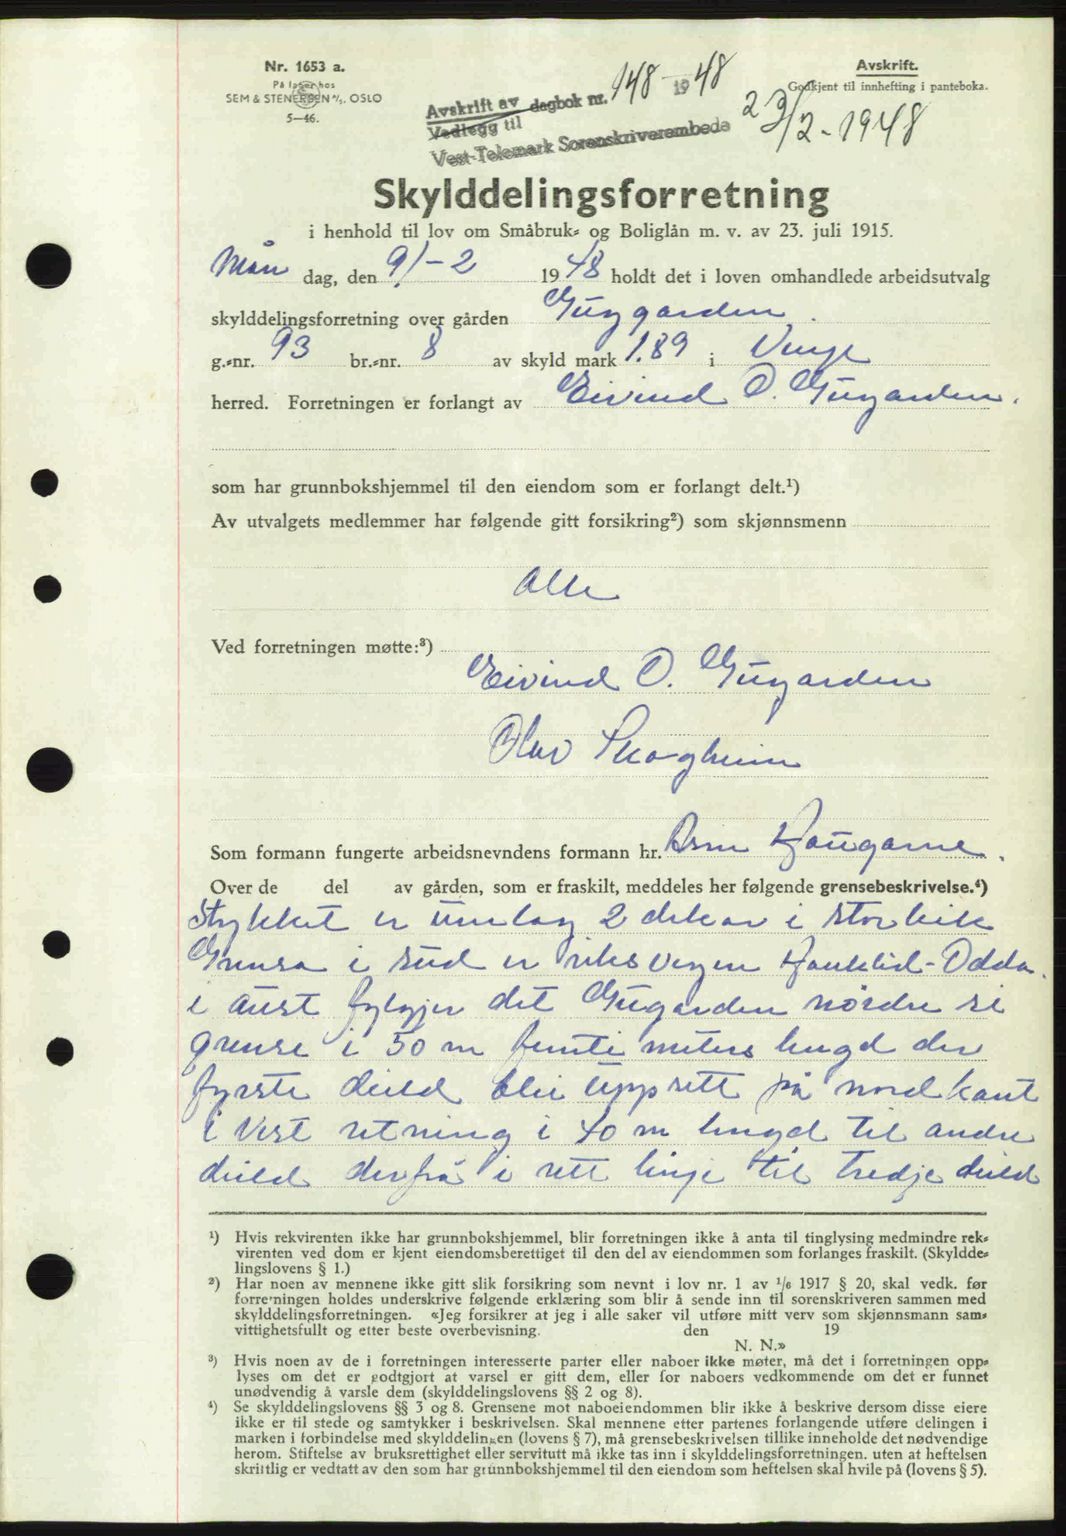 Nr. 1653 a.
På lager hos
SEM & STENERSEN A/S. OSLO
5—46.
Avskrift av dagbok nr. 148 - 1948
Vedlegg til
Vest-Telemark Sorenskriverembede
Avskrift.
Godkjent til innhefting i panteboka.
23/2-1948
Skylddelingsforretning
i henhold til lov om Småbruk- og Boliglån m. v. av 23. juli 1915.
Mån dag, den 9/-2 1948 holdt det i loven omhandlede arbeidsutvalg
skylddelingsforretning over gården Gugarden.
g.-nr. 93 br.-nr. 8 av skyld mark 1.89 i Vinje
herred. Forretningen er forlangt av Eivind O. Gugarden.
som har grunnbokshjemmel til den eiendom som er forlangt delt.¹)
Av utvalgets medlemmer har følgende gitt forsikring²) som skjønnsmenn
Alle
Ved forretningen møtte:³)
Eivind O. Gugarden
Olav Skogheim
Som formann fungerte arbeidsnevndens formann hr. Haugane.
Over de del av gården, som er fraskilt, meddeles her følgende grensebeskrivelse.⁴)
Stykket er umlag 2 dekar i storleik
Grensa i sud er riksvegen Haukelid-Odda.
i aust fylgjer det Gugarden nørdre si
grense i 50 m femti meters lengd der
fyrste deild blei uppsett på nordkant
i Vest retning i 40 m lengd til andre
deild derfrå i rett linje til tredje deild
¹) Hvis rekvirenten ikke har grunnbokshjemmel, blir forretningen ikke å anta til tinglysing medmindre rek-
virenten ved dom er kjent eiendomsberettiget til den del av eiendommen som forlanges fraskilt. (Skyldde-
lingslovens § 1.)
²) Har noen av mennene ikke gitt slik forsikring som nevnt i lov nr. 1 av ¹/₆ 1917 § 20, skal vedk. før
forretningen holdes underskrive følgende erklæring som blir å sende inn til sorenskriveren sammen med
skylddelingsforretningen. «Jeg forsikrer at jeg i alle saker vil utføre mitt verv som skjønnsmann sam-
vittighetsfullt og etter beste overbevisning. den 19
N. N.»
³) Hvis noen av de i forretningen interesserte parter eller naboer ikke møter, må det i forretningen opp-
lyses om det er godtgjort at varsel er gitt dem, eller for naboers vedkommende om det er funnet
unødvendig å varsle dem (skylddelingslovens §§ 2 og 8).
⁴) Se skylddelingslovens §§ 3 og 8. Grensene mot naboeiendommen blir ikke å beskrive dersom disse eiere
ikke er til stede og samtykker i beskrivelsen. Skal mennene etter partenes forlangende utføre delingen i
marken i forbindelse med skylddelingen (lovens § 7), må grensebeskrivelsen tillike inneholde det nødvendige
herom. Stiftelse av bruksrettighet eller servitutt må ikke tas inn i skylddelingsforretningen. uten at heftelsen
skriftlig er vedtatt av den som har grunnbokshjemmel til den eiendom som heftelsen skal hvile på (lovens § 5).